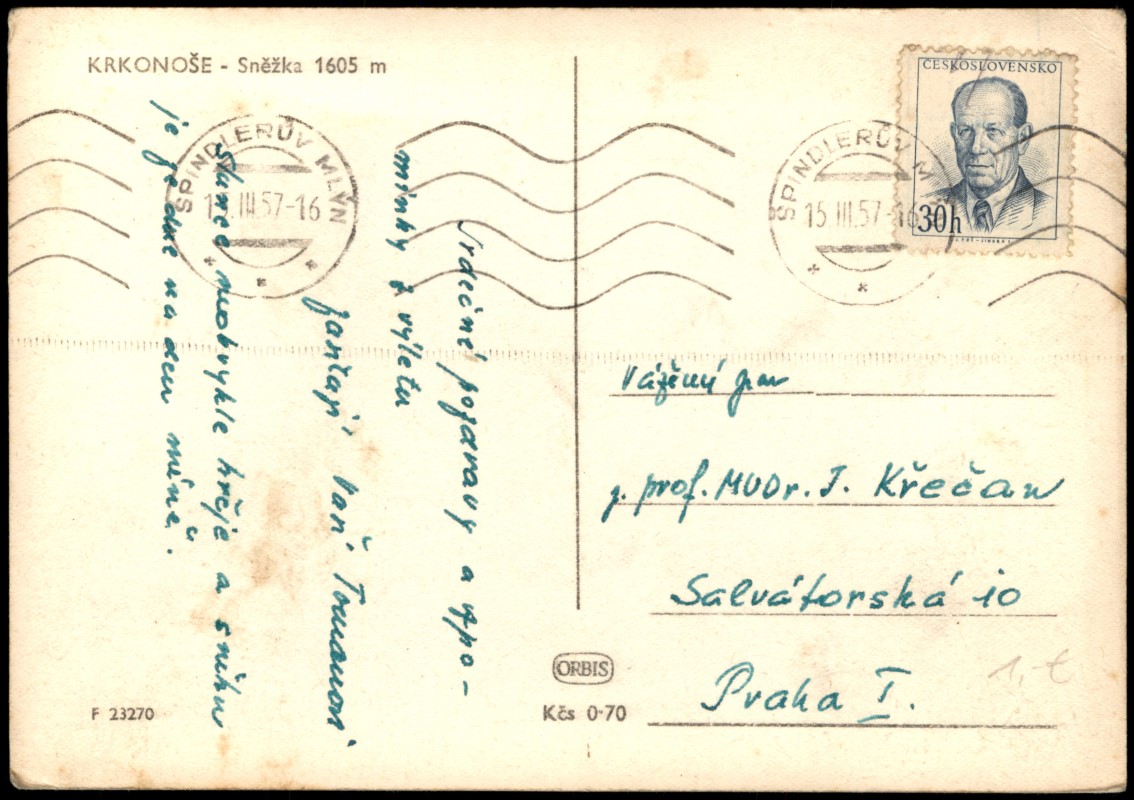 KRKONOŠE - Sněžka 1605 m
ČESKOSLOVENSKO
30h
ŠPINDLERŮV MLÝN
15.III.57-16
ŠPINDLERŮV M
15.III.57-16
Srdečné pozdravy a vzpo-
mínky z výletu
Vaši Tomanovi
Slunce neobykle hřeje a sněhu
je je den na den méně.
Vážený pan
p. prof. MUDr. J. Křečan
Salvátorská 10
Praha I.
1,- €
ORBIS
Kčs 0·70
F 23270